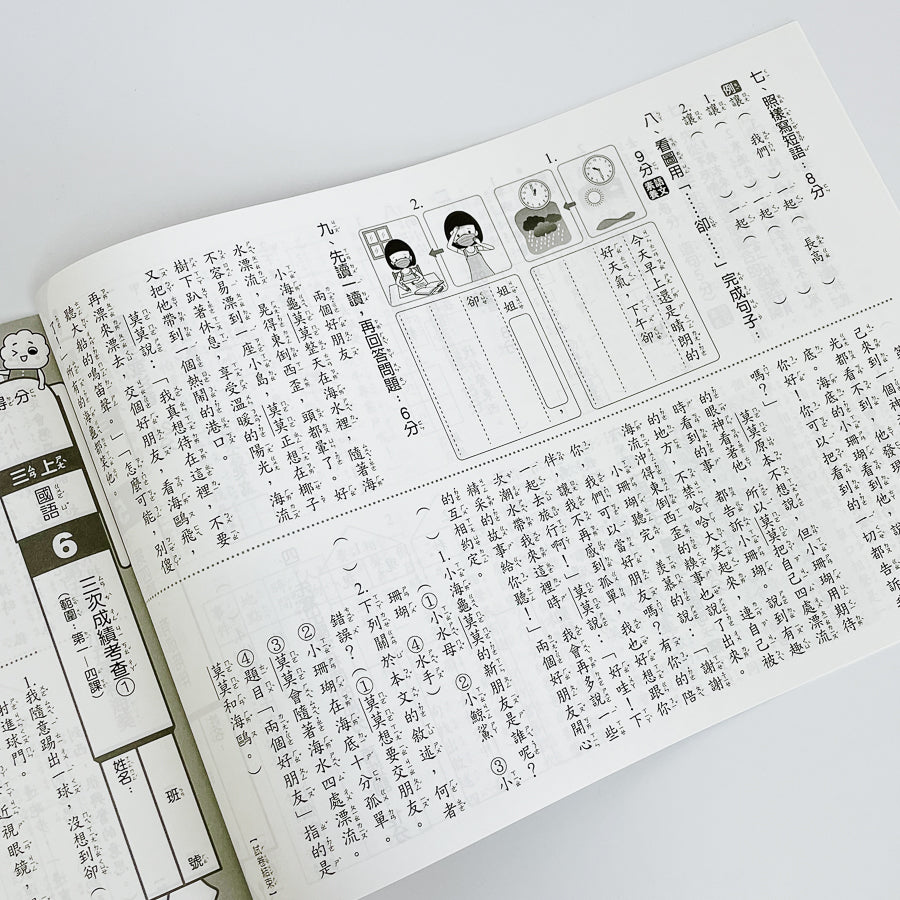 七、照樣寫短語：8分
例 讓（我們）一起（長高）
1. 讓（）一起（）
2. 讓（）一起（）
八、看圖用「……卻……」完成句子
9分
1.
今天早上還是晴朗的
好天氣，下午卻
2.
姐姐
，
卻
九、先讀一讀，再回答問題：6分
兩個好朋友
小海龜莫莫整天在海水裡，隨著海
水漂流，晃得東倒西歪，頭都暈了。好
不容易漂到一座小島，莫莫正想在椰子
樹下趴著休息，享受溫暖的陽光，海流
又把他帶到一個熱鬧的港口。
莫莫說：「我真想待在這裡，不要
再漂來漂去，交個好朋友，看海鷗飛，
聽大船的鳴笛聲。」「怎麼可能
別傻
己來到一個神
光都看不到
底。海底的小珊瑚看到他，
你好！你可以把看到的一切都告訴
嗎？」
莫莫原本不想說，但小珊瑚用期待
的眼神看著他，所以莫莫把自己四處漂流
時看到的事，都告訴小珊瑚。說到有趣
的地方，不禁哈哈大笑起來，連自己被
海流沖得東倒西歪的糗事也說了出來。
小珊瑚聽完，羨慕的說：「謝謝
你，我們可以當好朋友嗎？有你的陪
伴，讓我不再感到孤單，我也好想跟你
一起去旅行啊！」莫莫說：「好哇！下
次潮水帶我來這裡時，我會再多說一些
精采的故事給你聽！」兩個好朋友開心
的互相約定。
（）1. 小海龜莫莫的新朋友是誰呢？
①小水母 ②小鯨鯊 ③小
珊瑚 ④水手
（）2. 下列關於本文的敘述，何者
錯誤？ ①莫莫想要交朋友。
②小珊瑚在海底十分孤單。
③莫莫會隨著海水四處漂流。
④題目「兩個好朋友」指的是
莫莫和海鷗。
【試卷結束】
得分
三上
國語
6
三次成績考查①
（範圍：第一～四課）
班
號
姓名：
1. 我隨意踢出一球，沒想到卻（
射進球門。
近視眼鏡，